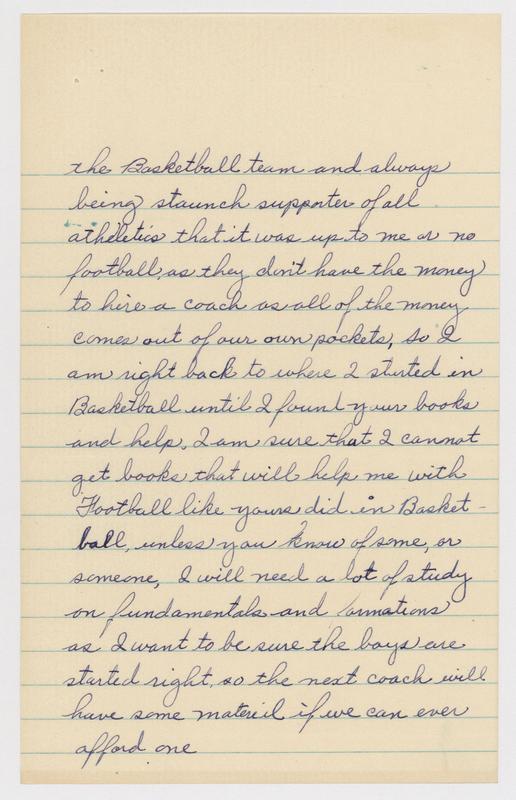 the Basketball team and always
being staunch supporter of all
atheletics that it was up to me or no
football, as they don't have the money
to hire a coach as all of the money
comes out of our own pockets, so I
am right back to where I started in
Basketball until I found your books
and help. I am sure that I cannot
get books that will help me with
Football like yours did in Basket-
ball, unless you know of some, or
someone, I will need a lot of study
on fundamentals and formations
as I want to be sure the boys are
started right, so the next coach will
have some matereil if we can ever
afford one